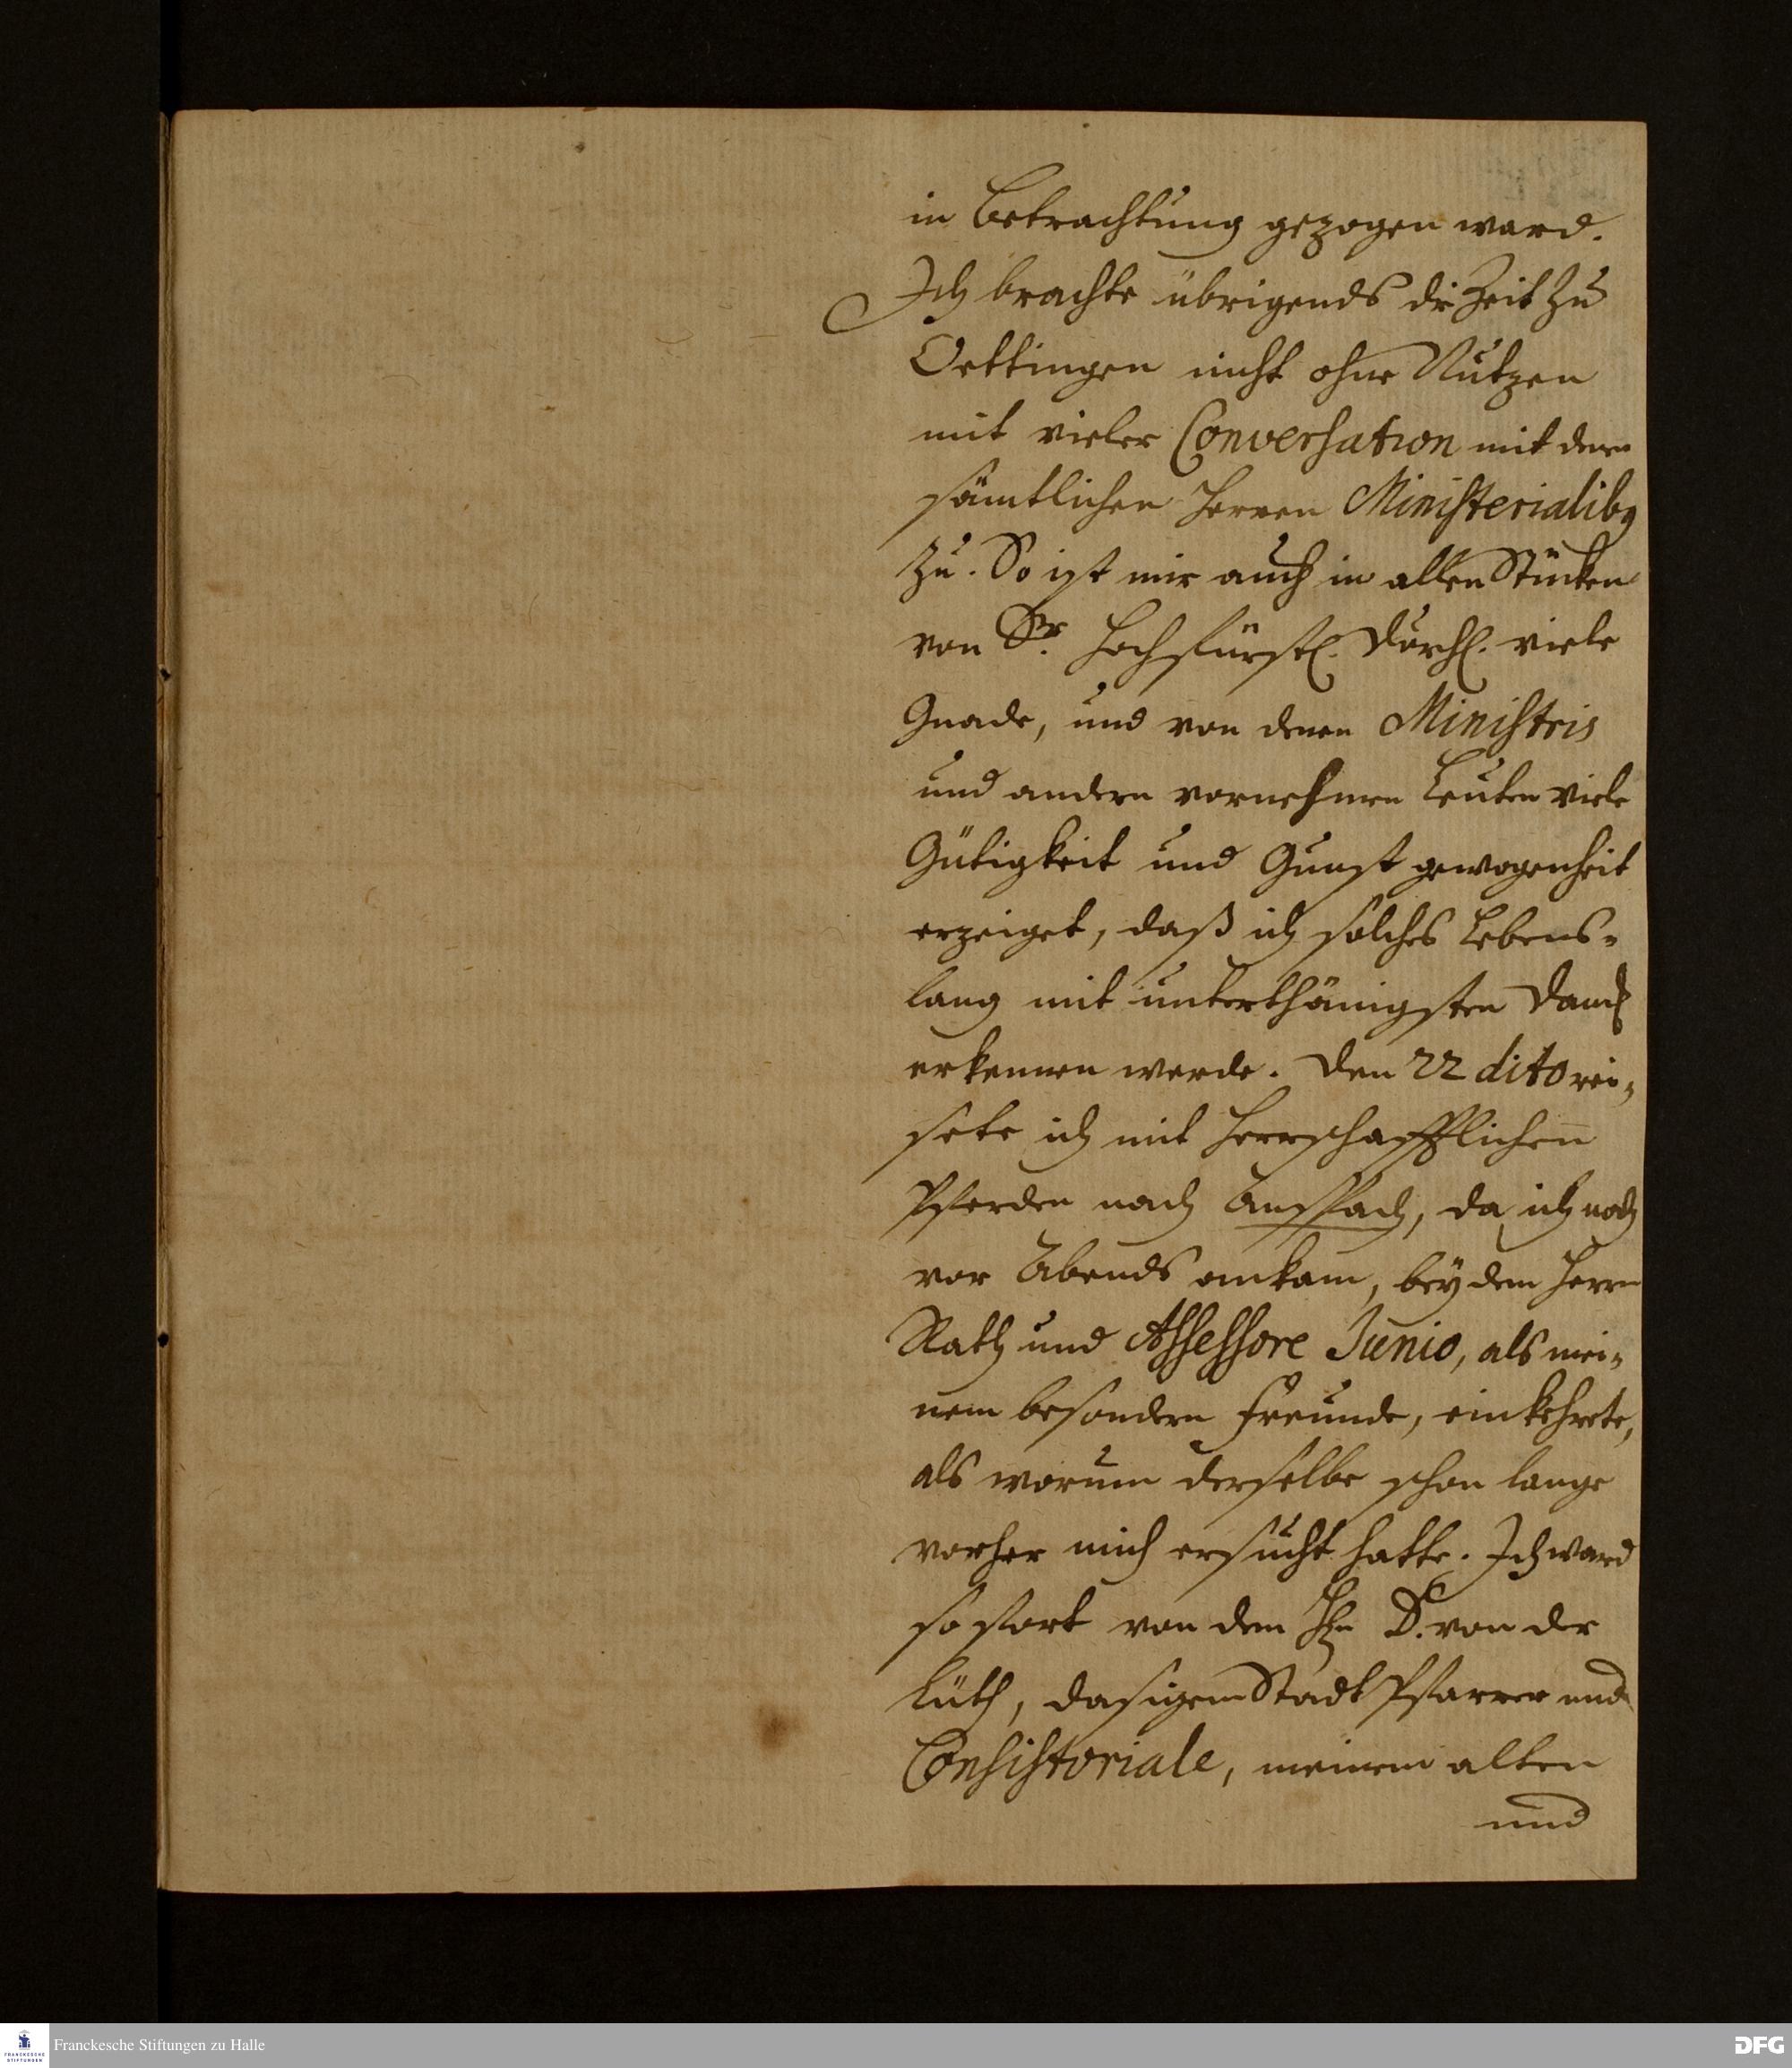 in Betrachtung gezogen ward.
Ich brachte übrigends die Zeit zu
Oettingen nicht ohne Nutzen
mit vieler Conversation mit denen
sämtlichen Herren Ministerialibq
zu. So ist mir auch in allen Stücken
von Sr. Hochfürstl. Durchl. viele
Gnade, und von denen Ministris
und andern vornehmen Leuten viele
Gütigkeit und Gunst gewogenheit
erzeiget, daß ich solches Lebens-
lang mit unterthänigsten Danck
erkennen werde. Den 22 dito rei-
sete ich mit Herrschafftlichen
Pferden nach Anspach, da ich noch
vor Abends ankam, bey dem Herrn
Rath und Assessore Junio, als mei-
nem besondern Freunde, einkehrete,
als worum derselbe schon lange
vorher mich ersucht hatte. Ich ward
so fort von dem Hn D. von der
Lüth, dasigem Stadt Pfarrer und
Consistoriale, meinem alten
und
FRANCKESCHE STIFTUNGEN
Franckesche Stiftungen zu Halle
DFG